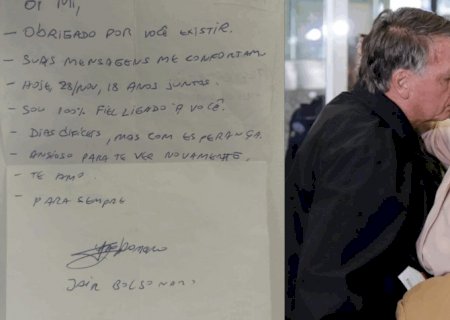 OI MI,
- OBRIGADO POR VOCÊ EXISTIR.
- SUAS MENSAGENS ME CONFORTAM
- HOJE, 28/NOV, 18 ANOS JUNTOS.
- SOU 100% FIEL LIGADO À VOCÊ.
- DIAS DIFÍCEIS, MAS COM ESPERANÇA.
- ANSIOSO PARA TE VER NOVAMENTE.
- TE AMO.
- PARA SEMPRE
JAIR BOLSONARO